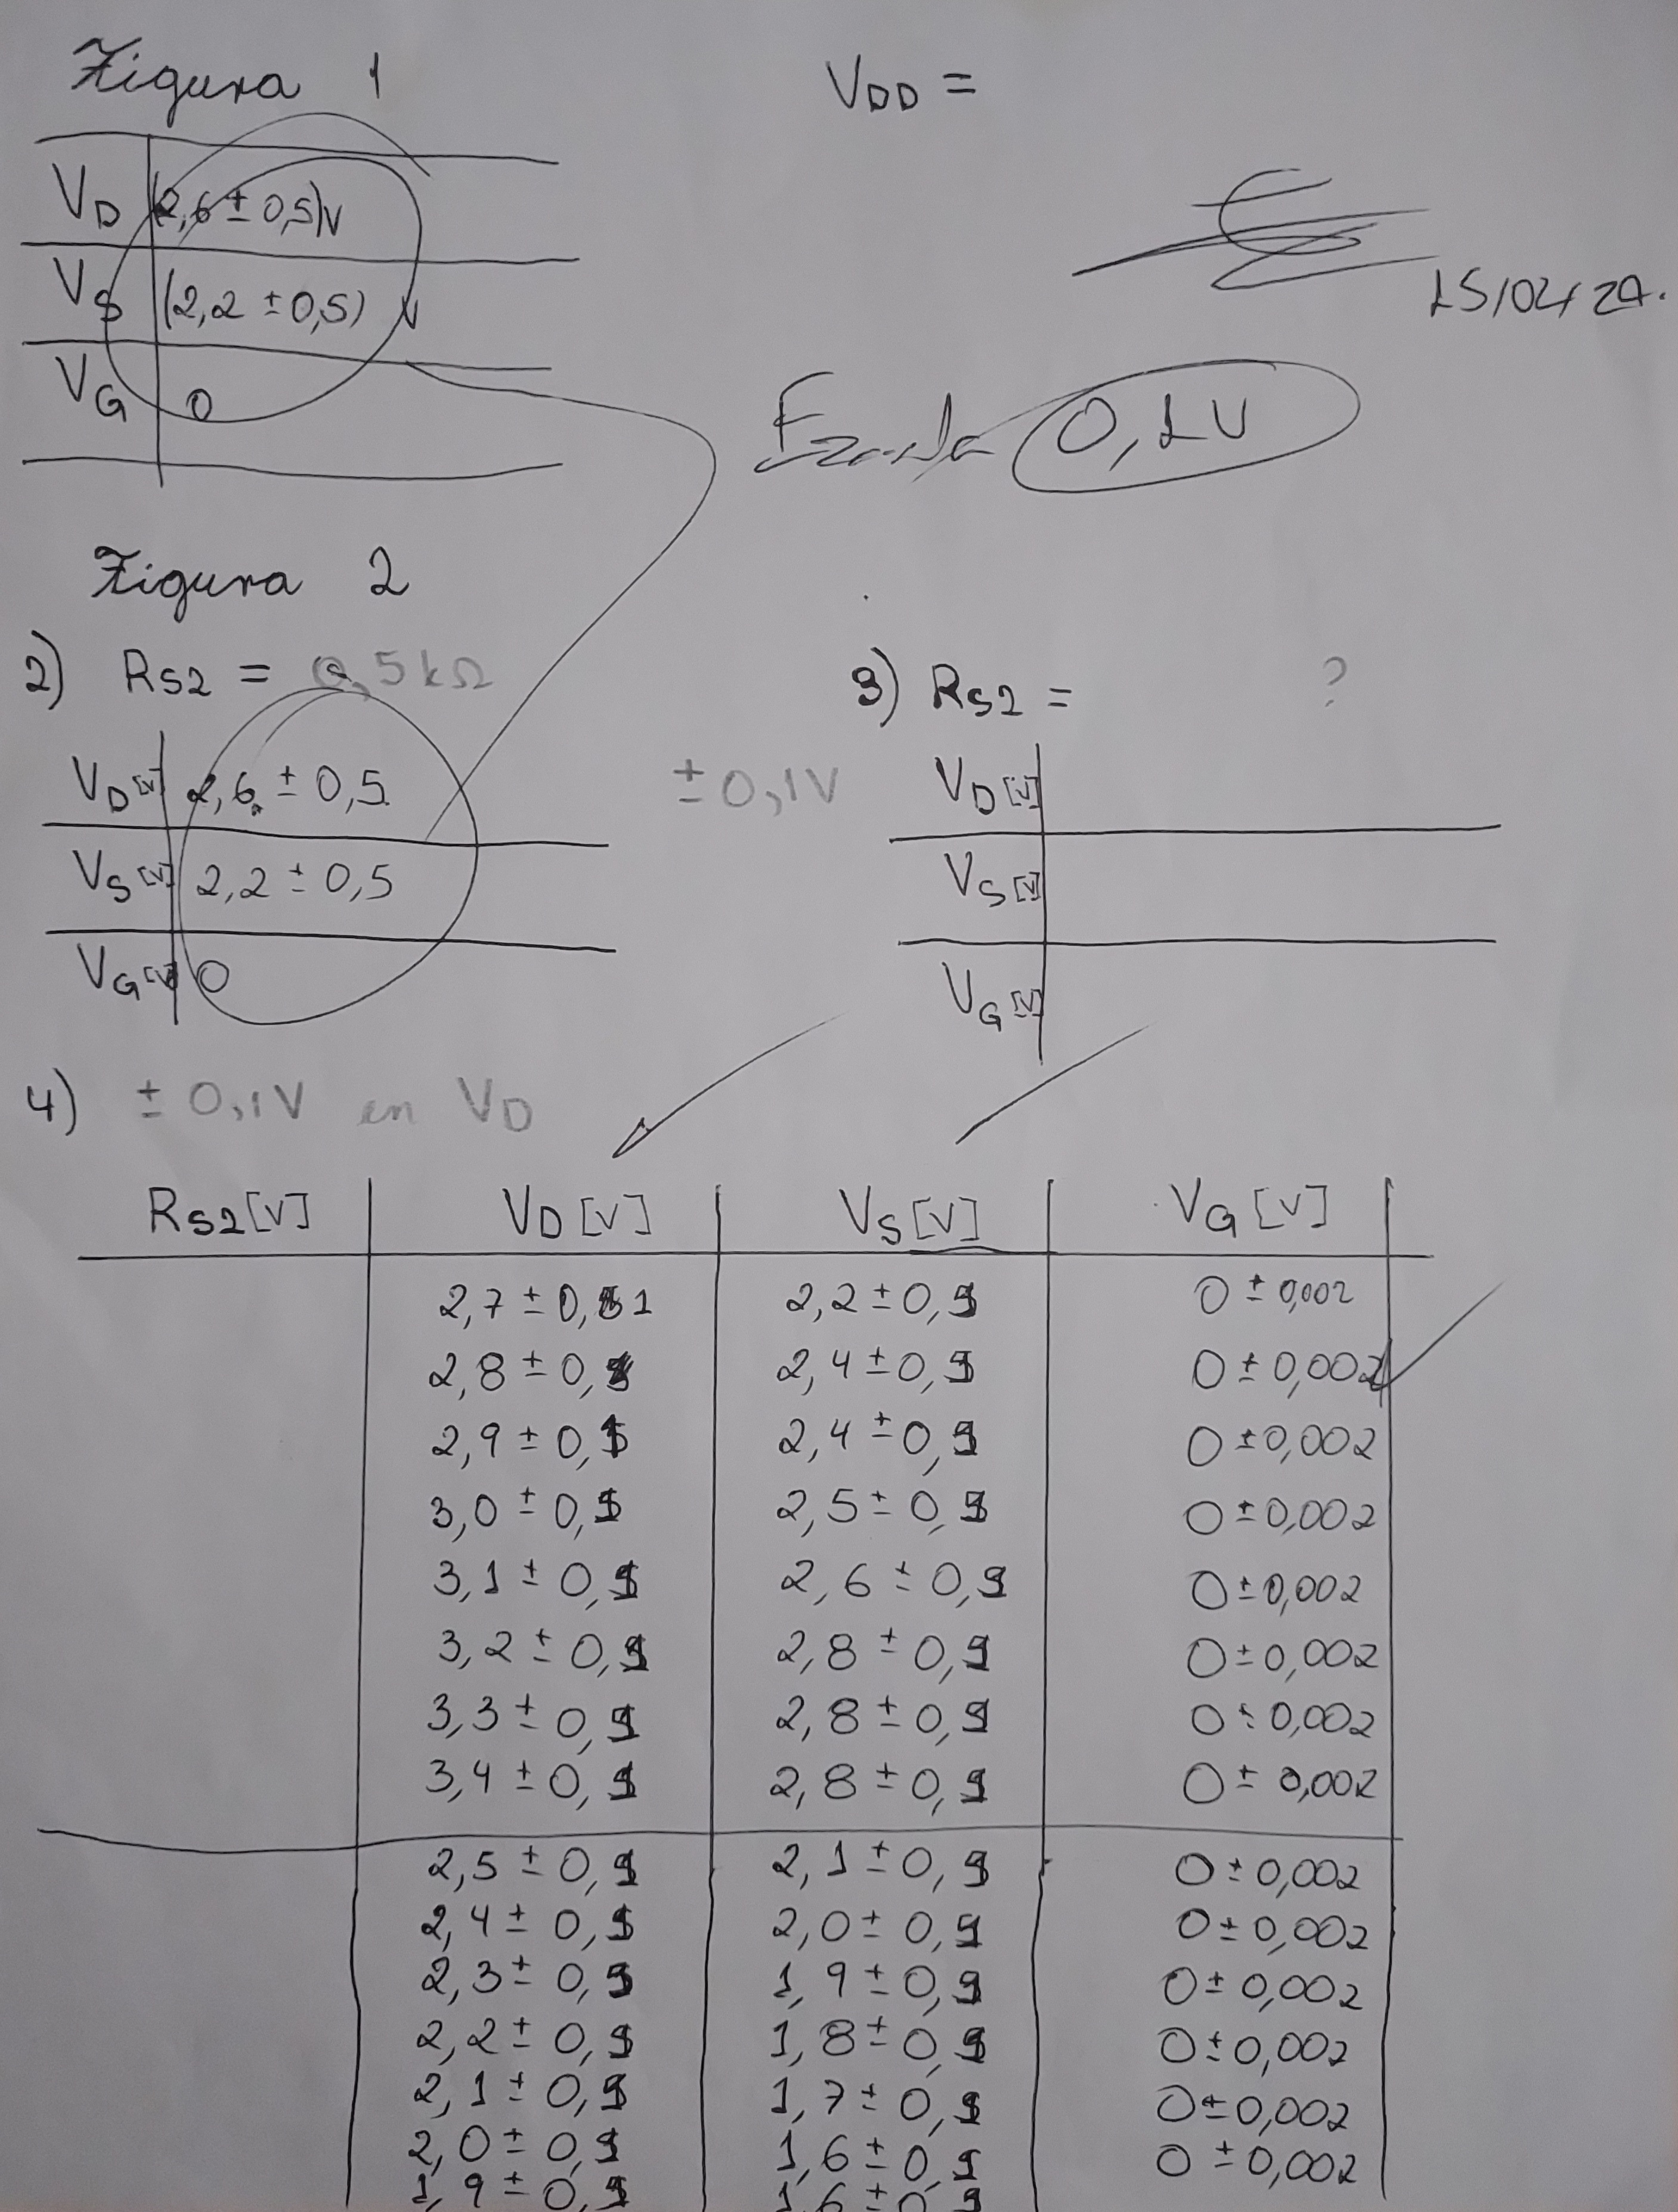 Figura 1
V_DD =
V_D (2,6 ± 0,5)V
V_S (2,2 ± 0,5) V
V_G 0
0,1V
Figura 2
2) R_S2 = 0,5 kΩ
V_D [V] 2,6 ± 0,5
V_S [V] 2,2 ± 0,5
V_G [V] 0
± 0,1V
3) R_S2 = ?
V_D [V]
V_S [V]
V_G [V]
4) ± 0,1V en V_D
R_S2 [V] V_D [V] V_S [V] V_G [V]
2,7 ± 0,1 2,2 ± 0,1 0 ± 0,002
2,8 ± 0,1 2,4 ± 0,1 0 ± 0,002
2,9 ± 0,1 2,4 ± 0,1 0 ± 0,002
3,0 ± 0,1 2,5 ± 0,1 0 ± 0,002
3,1 ± 0,1 2,6 ± 0,1 0 ± 0,002
3,2 ± 0,1 2,8 ± 0,1 0 ± 0,002
3,3 ± 0,1 2,8 ± 0,1 0 ± 0,002
3,4 ± 0,1 2,8 ± 0,1 0 ± 0,002
2,5 ± 0,1 2,1 ± 0,1 0 ± 0,002
2,4 ± 0,1 2,0 ± 0,1 0 ± 0,002
2,3 ± 0,1 1,9 ± 0,1 0 ± 0,002
2,2 ± 0,1 1,8 ± 0,1 0 ± 0,002
2,1 ± 0,1 1,7 ± 0,1 0 ± 0,002
2,0 ± 0,1 1,6 ± 0,1 0 ± 0,002
1,9 ± 0,1 1,6 ± 0,1